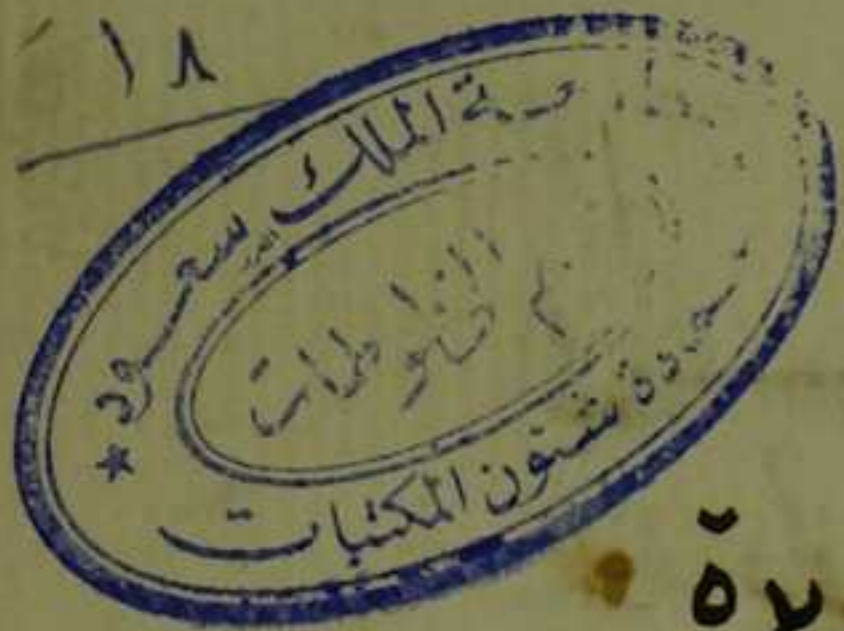 ١٨
جامعة الملك سعود
قسم المخطوطات
عمادة شئون المكتبات